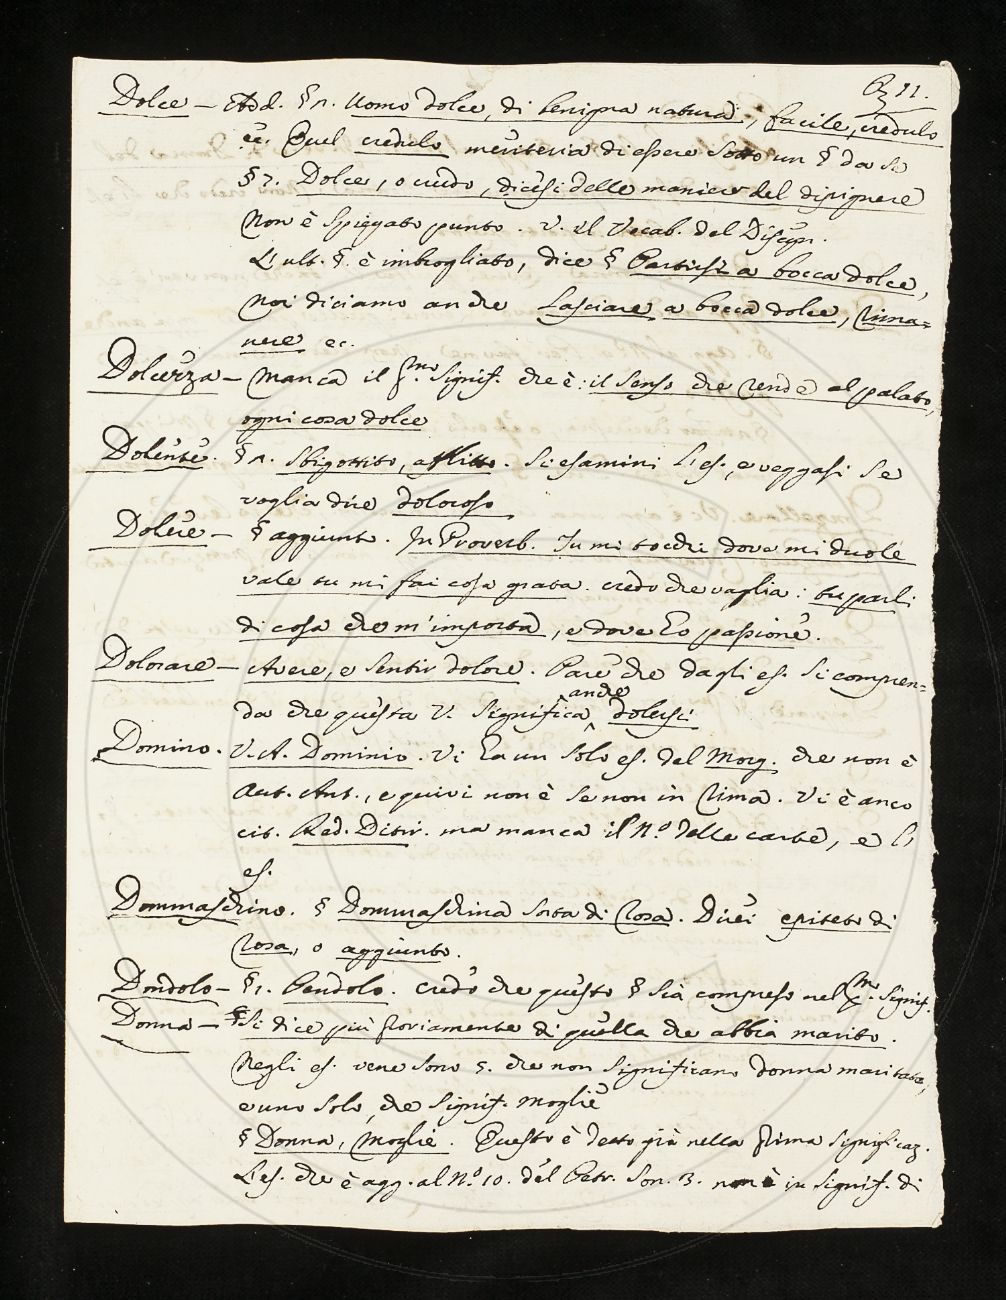 11.
Dolce — Add. § 1. Uomo dolce, di benigna natura, facile, credulo
ec. Quel credulo meriteria di essere sotto un § da se
§ 7. Dolce, o crudo, dicesi delle maniere del dipignere
Non è spiegato punto. V. il Vocab. del Disegn.
L'ult. §. è imbrogliato, dice § Partirsi a bocca dolce,
noi diciamo anche Lasciare a bocca dolce, rima=
nere ec.
Dolcezza — manca il pmo. signif. che è: il senso che rende al palato
ogni cosa dolce
Dolente. § 1. Sbigottito, afflitto. Si esamini l'es., e veggasi se
voglia dire doloroso
Dolere — § aggiunto. In Proverb. Tu mi tocchi dove mi duole
vale tu mi fai cosa grata. credo che vaglia: tu parli
di cosa che m'importa, e dove ho passione.
Dolorare — Avere, e sentir dolore. Pare che dagli es. si compren=
da che questa V. significa anche dolersi
Domino. V. A. Dominio. Vi ha un solo es. del Morg. che non è
Aut. Ant., e quivi non è se non in rima. Vi è anco
cit. Red. Ditir. ma manca il N.º delle carte, e l'
es.
Dommaschino. § Dommaschina sorta di rosa. Direi epiteto di
rosa, o aggiunto.
Dondolo — § 1. Pendolo. credo che questo § sia compreso nel pmo. signif.
Donna — § Si dice più propriamente di quella che abbia marito.
Negli es. vene sono 5. che non significano donna maritata,
e uno solo, che signif. moglie
§ Donna, Moglie. Questo è detto già nella prima significaz.
L'es. che è agg. al N.º 10. del Petr. Son. 3. non è in signif. di